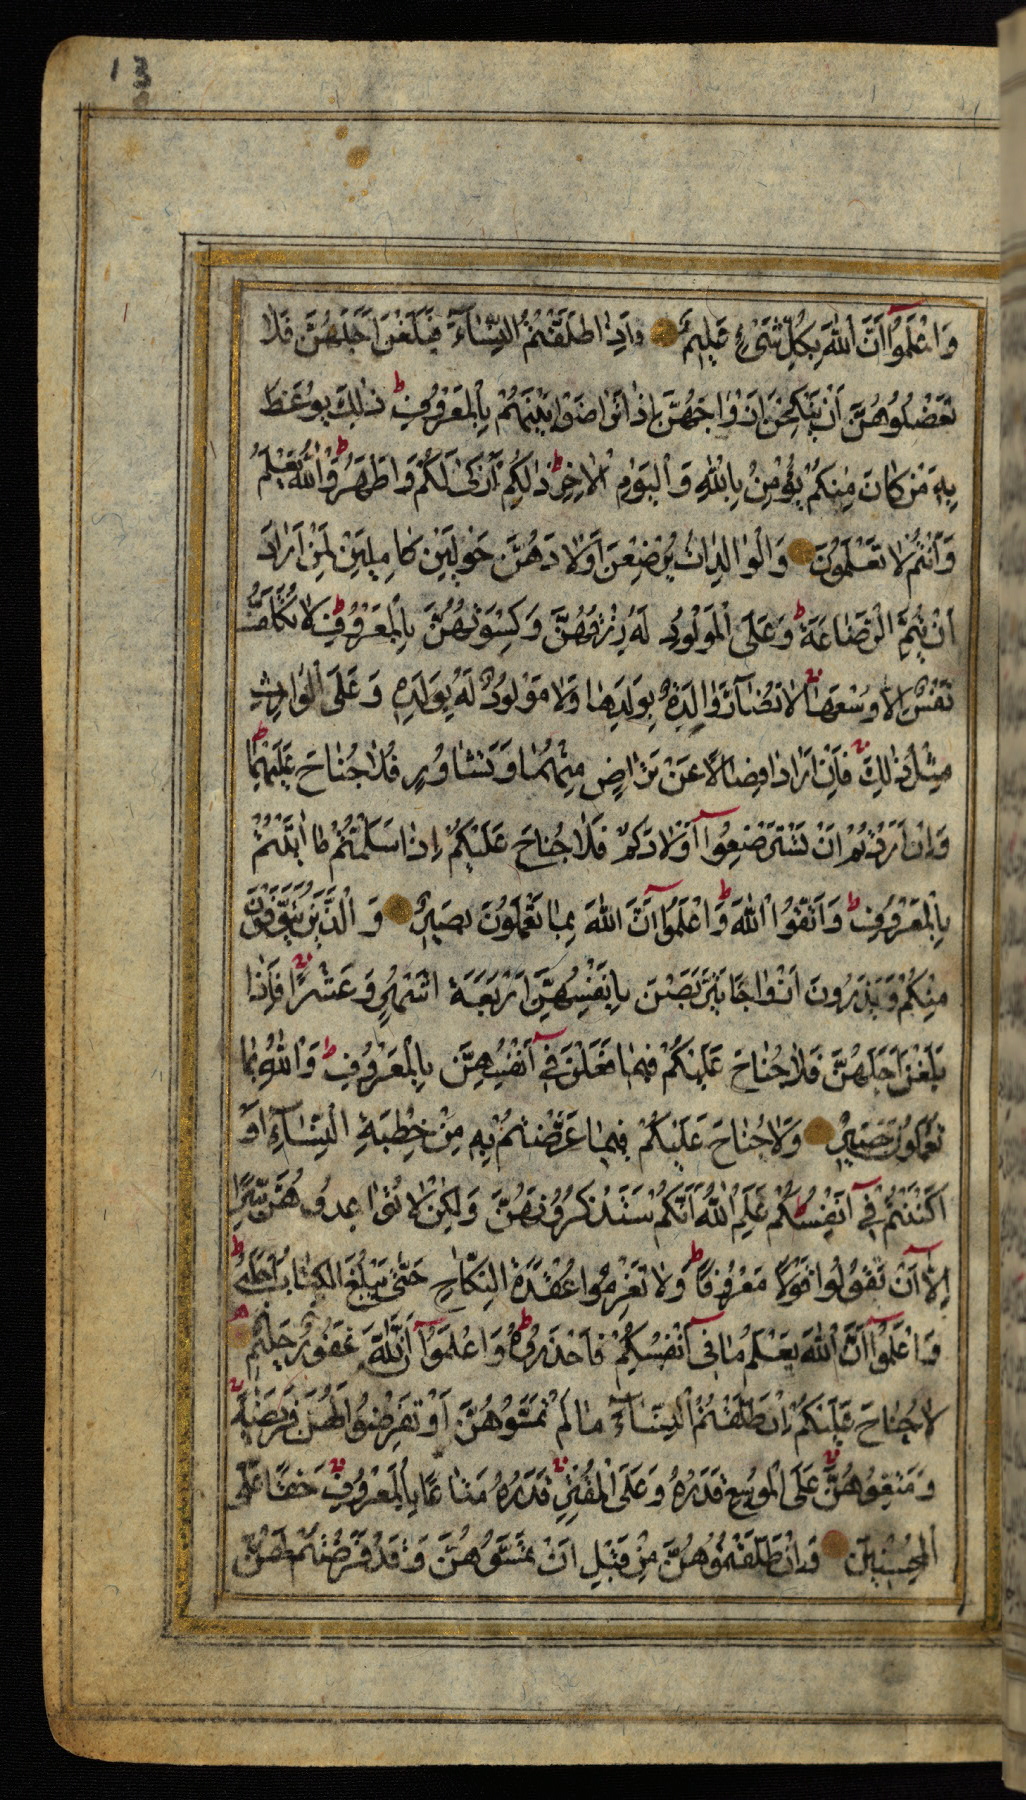 وَاعْلَمُوا أَنَّ اللهَ بِكُلِّ شَيْءٍ عَلِيمٌ وَإِذَا طَلَّقْتُمُ النِّسَاءَ فَبَلَغْنَ أَجَلَهُنَّ فَلَا
تَعْضُلُوهُنَّ أَنْ يَنْكِحْنَ أَزْوَاجَهُنَّ إِذَا تَرَاضَوْا بَيْنَهُمْ بِالْمَعْرُوفِ ط ذٰلِكَ يُوعَظُ
بِهِ مَنْ كَانَ مِنْكُمْ يُؤْمِنُ بِاللهِ وَالْيَوْمِ الْآخِرِ ط ذٰلِكُمْ أَزْكَى لَكُمْ وَأَطْهَرُ ط وَاللهُ يَعْلَمُ
وَأَنْتُمْ لَا تَعْلَمُونَ وَالْوَالِدَاتُ يُرْضِعْنَ أَوْلَادَهُنَّ حَوْلَيْنِ كَامِلَيْنِ لِمَنْ أَرَادَ
أَنْ يُتِمَّ الرَّضَاعَةَ ط وَعَلَى الْمَوْلُودِ لَهُ رِزْقُهُنَّ وَكِسْوَتُهُنَّ بِالْمَعْرُوفِ ط لَا تُكَلَّفُ
نَفْسٌ إِلَّا وُسْعَهَا لَا تُضَارَّ وَالِدَةٌ بِوَلَدِهَا وَلَا مَوْلُودٌ لَهُ بِوَلَدِهِ وَعَلَى الْوَارِثِ
مِثْلُ ذٰلِكَ فَإِنْ أَرَادَا فِصَالًا عَنْ تَرَاضٍ مِنْهُمَا وَتَشَاوُرٍ فَلَا جُنَاحَ عَلَيْهِمَا ط
وَإِنْ أَرَدْتُمْ أَنْ تَسْتَرْضِعُوا أَوْلَادَكُمْ فَلَا جُنَاحَ عَلَيْكُمْ إِذَا سَلَّمْتُمْ مَا آتَيْتُمْ
بِالْمَعْرُوفِ ط وَاتَّقُوا اللهَ ط وَاعْلَمُوا أَنَّ اللهَ بِمَا تَعْمَلُونَ بَصِيرٌ وَالَّذِينَ يُتَوَفَّوْنَ
مِنْكُمْ وَيَذَرُونَ أَزْوَاجًا يَتَرَبَّصْنَ بِأَنْفُسِهِنَّ أَرْبَعَةَ أَشْهُرٍ وَعَشْرًا فَإِذَا
بَلَغْنَ أَجَلَهُنَّ فَلَا جُنَاحَ عَلَيْكُمْ فِيمَا فَعَلْنَ فِي أَنْفُسِهِنَّ بِالْمَعْرُوفِ ط وَاللهُ بِمَا
تَعْمَلُونَ خَبِيرٌ وَلَا جُنَاحَ عَلَيْكُمْ فِيمَا عَرَّضْتُمْ بِهِ مِنْ خِطْبَةِ النِّسَاءِ أَوْ
أَكْنَنْتُمْ فِي أَنْفُسِكُمْ ط عَلِمَ اللهُ أَنَّكُمْ سَتَذْكُرُونَهُنَّ وَلٰكِنْ لَا تُوَاعِدُوهُنَّ سِرًّا
إِلَّا أَنْ تَقُولُوا قَوْلًا مَعْرُوفًا ط وَلَا تَعْزِمُوا عُقْدَةَ النِّكَاحِ حَتَّى يَبْلُغَ الْكِتَابُ أَجَلَهُ ط
وَاعْلَمُوا أَنَّ اللهَ يَعْلَمُ مَا فِي أَنْفُسِكُمْ فَاحْذَرُوهُ ط وَاعْلَمُوا أَنَّ اللهَ غَفُورٌ حَلِيمٌ
لَا جُنَاحَ عَلَيْكُمْ إِنْ طَلَّقْتُمُ النِّسَاءَ مَا لَمْ تَمَسُّوهُنَّ أَوْ تَفْرِضُوا لَهُنَّ فَرِيضَةً
وَمَتِّعُوهُنَّ عَلَى الْمُوسِعِ قَدَرُهُ وَعَلَى الْمُقْتِرِ قَدَرُهُ مَتَاعًا بِالْمَعْرُوفِ حَقًّا عَلَى
الْمُحْسِنِينَ وَإِنْ طَلَّقْتُمُوهُنَّ مِنْ قَبْلِ أَنْ تَمَسُّوهُنَّ وَقَدْ فَرَضْتُمْ لَهُنَّ